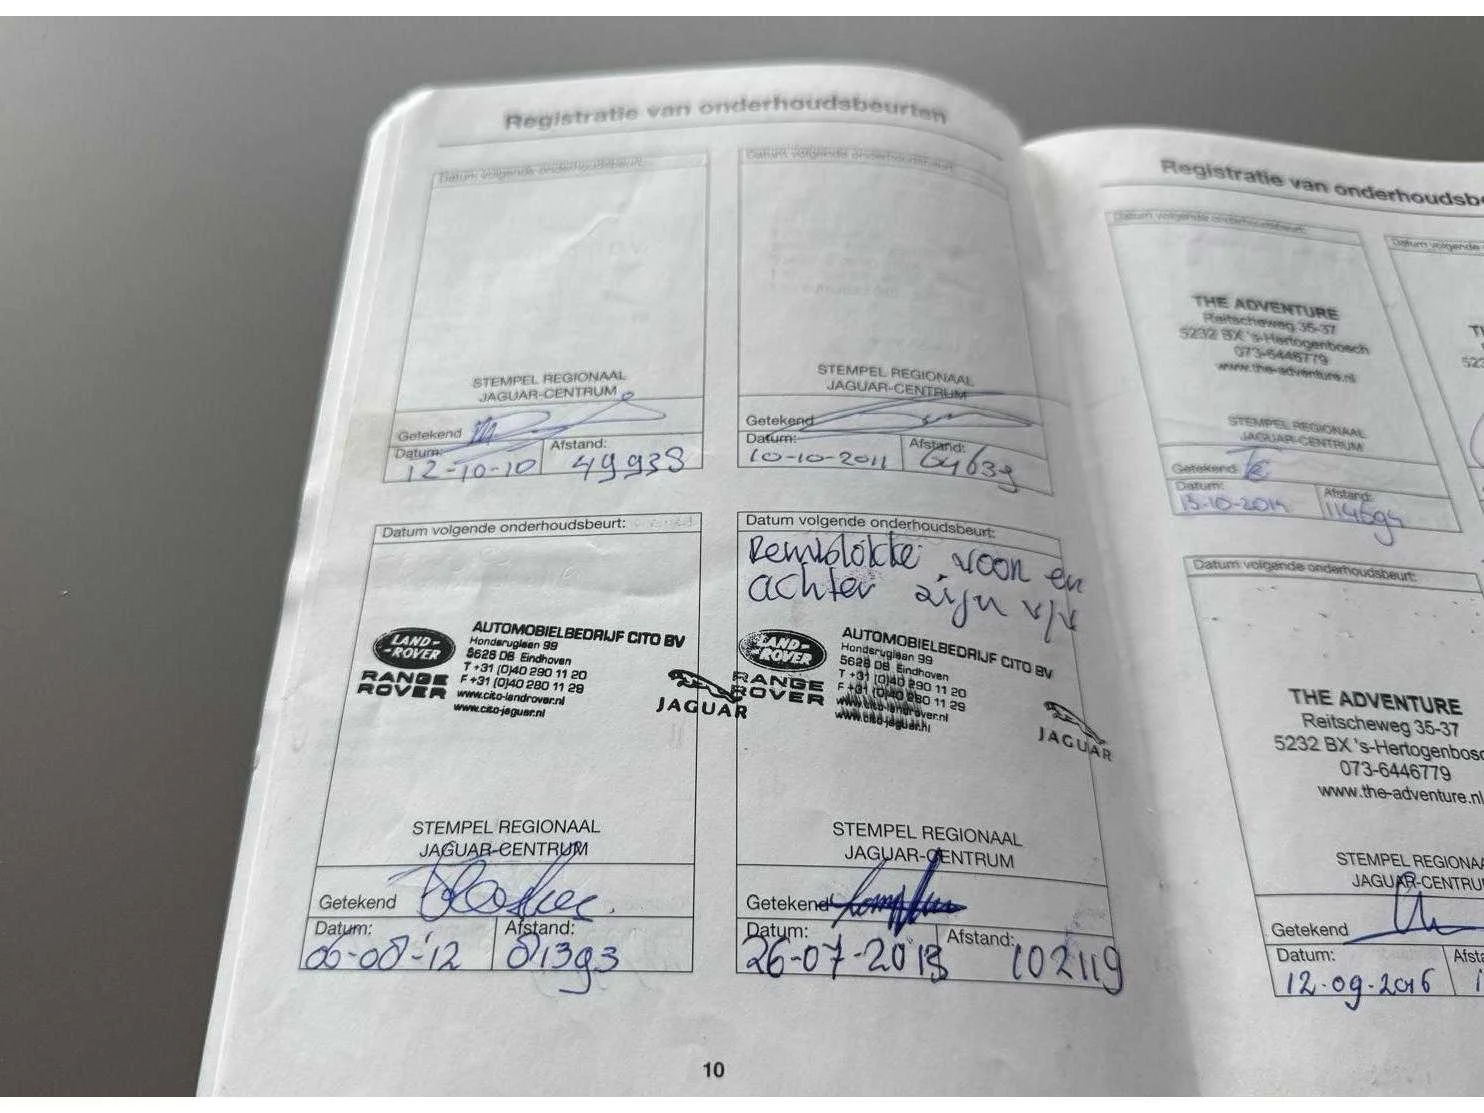 Registratie van onderhoudsbeurten
Datum volgende onderhoudsbeurt:
STEMPEL REGIONAAL
JAGUAR-CENTRUM
Getekend
Datum:
Afstand:
12-10-10
49938
Datum volgende onderhoudsbeurt:
STEMPEL REGIONAAL
JAGUAR-CENTRUM
Getekend
Datum:
Afstand:
10-10-2011
64639
Datum volgende onderhoudsbeurt:
LAND-
-ROVER
RANGE
ROVER
AUTOMOBIELBEDRIJF CITO BV
Hondsruglaan 99
5628 DB Eindhoven
T +31 (0)40 290 11 20
F +31 (0)40 290 11 29
www.cito-landrover.nl
www.cito-jaguar.nl
JAGUAR
STEMPEL REGIONAAL
JAGUAR-CENTRUM
Getekend
Datum:
Afstand:
06-08-'12
81393
Datum volgende onderhoudsbeurt:
Remblokke voor en
achter zijn v/v
LAND-
-ROVER
RANGE
ROVER
AUTOMOBIELBEDRIJF CITO BV
Hondsruglaan 99
5628 DB Eindhoven
T +31 (0)40 290 11 20
F +31 (0)40 290 11 29
www.cito-landrover.nl
www.cito-jaguar.nl
JAGUAR
STEMPEL REGIONAAL
JAGUAR-CENTRUM
Getekend
Datum:
Afstand:
26-07-2013
102119
10
Registratie van onderhoudsb
Datum volgende onderhoudsbeurt:
THE ADVENTURE
Reitscheweg 35-37
5232 BX 's-Hertogenbosch
073-6446779
www.the-adventure.nl
STEMPEL REGIONAAL
JAGUAR-CENTRUM
Getekend
Datum:
Afstand:
13-10-2014
114694
Datum volgende
Datum volgende onderhoudsbeurt:
THE ADVENTURE
Reitscheweg 35-37
5232 BX 's-Hertogenbosc
073-6446779
www.the-adventure.nl
STEMPEL REGIONAA
JAGUAR-CENTRU
Getekend
Datum:
Afsta
12-09-2016